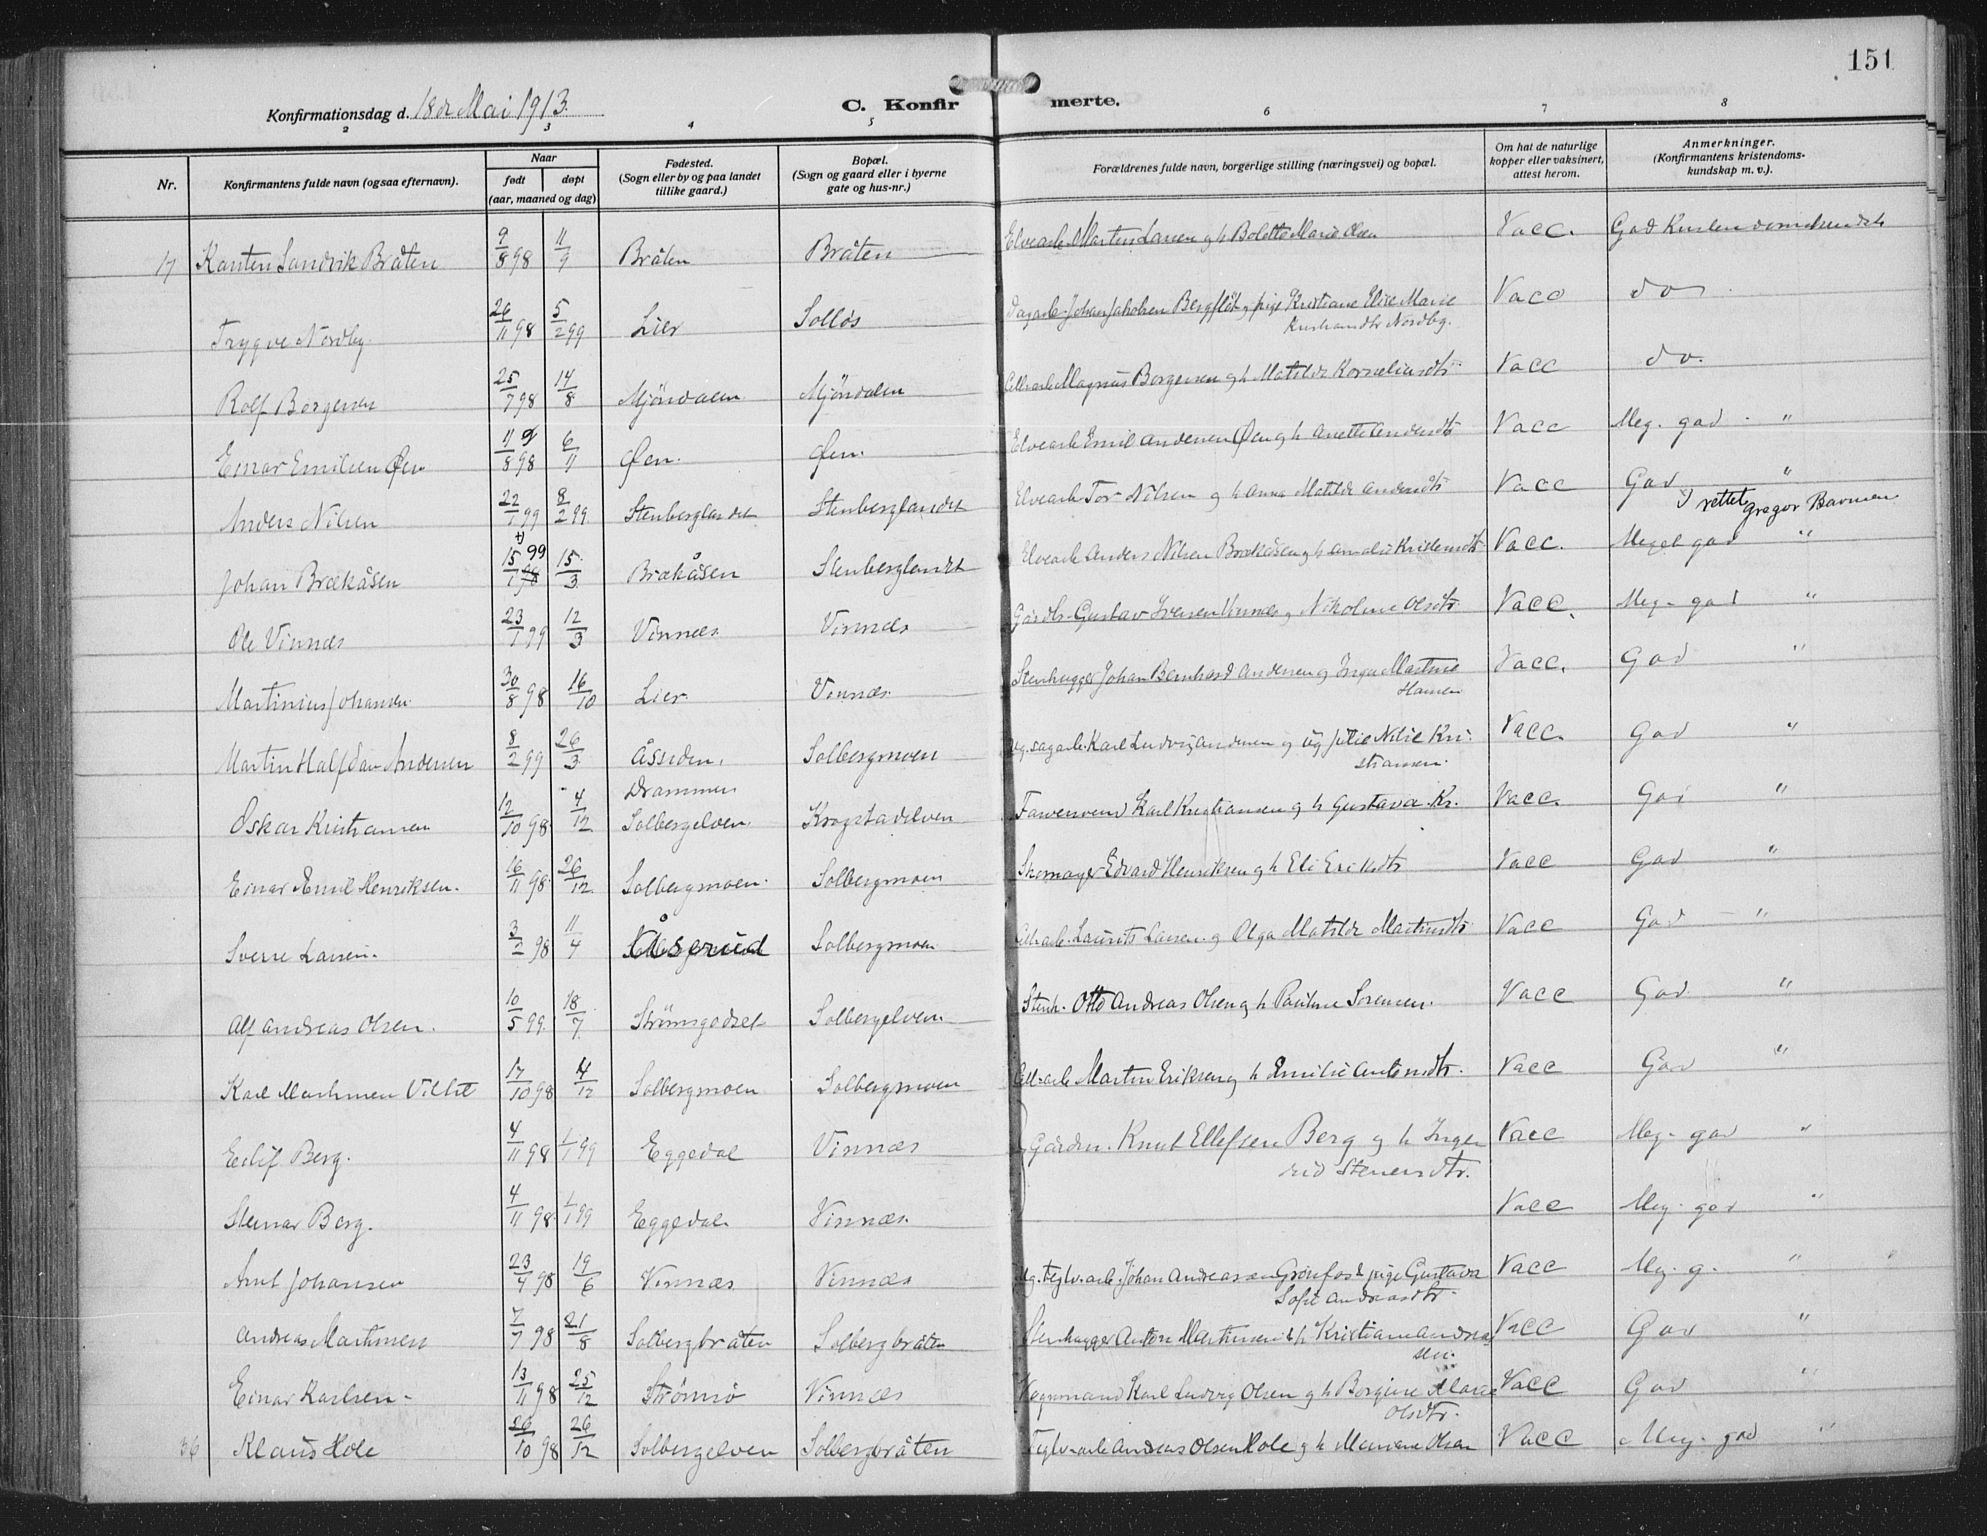 151
Konfirmationsdag d. 18de Mai 1913.
C. Konfirmerte.
2 3 4 5 6 7 8
Nr.
Konfirmantens fulde navn (ogsaa efternavn).
Naar
født
døpt
(aar, maaned og dag)
Fødested.
(Sogn eller by og paa landet
tillike gaard.)
Bopæl.
(Sogn og gaard eller i byerne
gate og hus-nr.)
Forældrenes fulde navn, borgerlige stilling (næringsvei) og bopæl.
Om hat de naturlige
kopper eller vaksinert,
attest herom.
Anmerkninger.
(Konfirmantens kristendoms-
kundskap m. v.).
17 Karsten Sandvik Bråten 9/8 98 11/9 Bråten Bråten Elvearb. Marten Larsen og h Bolette Marie Vacc. God
Trygve Nordby 26/11 98 5/2 99 Lier Solløs Dagarb. Johan Jakobsen Bergfløt og pige Kristiane Elise Marie Vacc do
Nordby.
Rolf Borgersen 25/7 98 14/8 Mjöndalen Mjöndalen Magnus Borgersen og h Matilde Korneliusdtr Vacc do.
Einar Emilsen Øen 11/8 98 6/11 Øen. Øen. Elvearb Emil Andersen Øen og h Anette Andersdtr Vacc Meg. god "
Anders Nilsen 22/1 99 8/2 99 Stenberglandet Stenberglandet Elvearb Tor Nilsen og h Anna Matilde Andersdtr Vacc God "
rettet Gregor Barmen
Johan Brækåsen 15/1 99 15/3 Brækåsen Stenberglandet Elvearb Anders Nilsen Brækåsen og h Amalie Kristensdtr Vacc. Meget god "
Ole Vinnæs 23/1 99 12/3 Vinnæs Vinnæs Gårdbr. Gustav Iversen Vinnæs og Nikoline Olsdtr Vacc. Meg. god "
Martinius Johansen 30/8 98 16/10 Lier Vinnæs Stenhugger Johan Bernhard Andersen og Inga Martine Vacc. God "
Hansen
Martin Halfdan Andersen 8/2 99 26/3 Åssiden. Solbergmoen sagarb. Karl Ludvig Andersen og Nilie Kri- Vacc. God "
stiansen.
Drammen
Oskar Kristiansen 12/10 98 4/12 Solbergelven Krogstadelven Karl Kristiansen og h Gustava Kr. Vacc. God "
Einar Emil Henriksen. 16/11 98 26/12 Solbergmoen Solbergmoen Skomager Edvard Henriksen og h Eli Eriksdtr Vacc God "
Sverre Larsen. 3/2 98 11/4 Åserud Solbergmoen Laurits Larsen og Olga Matilde Martinsdtr Vacc God "
Alf Andreas Olsen. 10/5 99 18/7 Strømsgodset Solbergelven Stenh. Otto Andreas Olsen og h Pauline Sorensen. Vacc God "
Karl Martinsen 17/10 98 4/12 Solbergmoen Solbergmoen Martin Eriksen og h Emilie Antonsdtr. Vacc God "
Eilif Berg. 4/11 98 1/1 99 Eggedal Vinnæs Gårdbr. Knut Ellefsen Berg og h Inge- Vacc Meg. god "
rid Stenersdtr.
Steinar Berg. 4/11 98 1/1 99 Eggedal Vinnæs Vacc Meg. god "
Arnt Johansen 23/4 98 19/6 Vinnæs Vinnæs Ug. teglv. arb. Johan Andreassen Grönfos & pige Gustava Vacc Meg. g. "
Sofie Andreasdtr.
Andreas Martinsen 7/7 98 21/8 Solbergbråten Solbergbråten Stenhugger Anton Martinsen & h Kristian Andreas Vacc God "
sen.
Einar Karlsen 13/11 98 25/12 Strömsö Vinnæs Karl Ludvig Olsen og h Borgine Marie Vacc God "
Olsdtr.
36 Klaus Hole 26/10 98 26/12 Solbergelven Solbergbråten Teglv. arb Andreas Olsen Hole og h Mariane Olsen Vacc Meg. god "